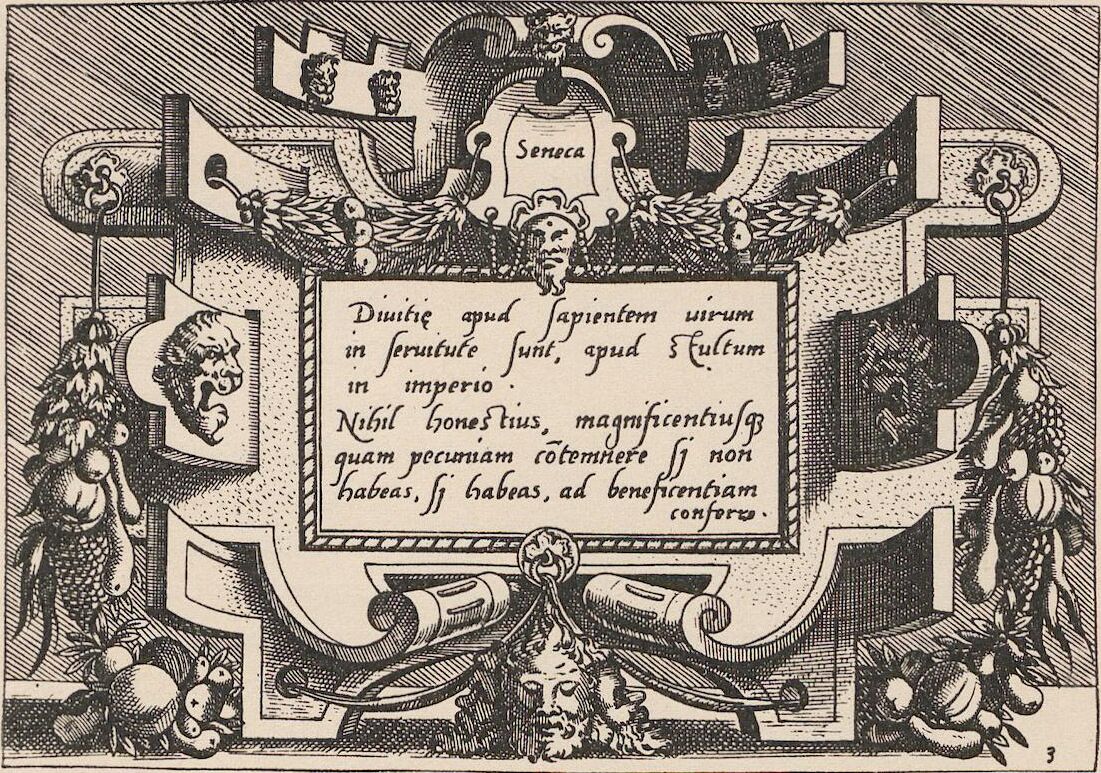 Seneca
Diuitię apud ſapientem uirum
in ſeruitute ſunt, apud stultum
in imperio.
Nihil honestius, magnificentiuſqꝫ
quam pecuniam cōtemnere ſj non
habeas, ſj habeas, ad beneficentiam
conferre.
3